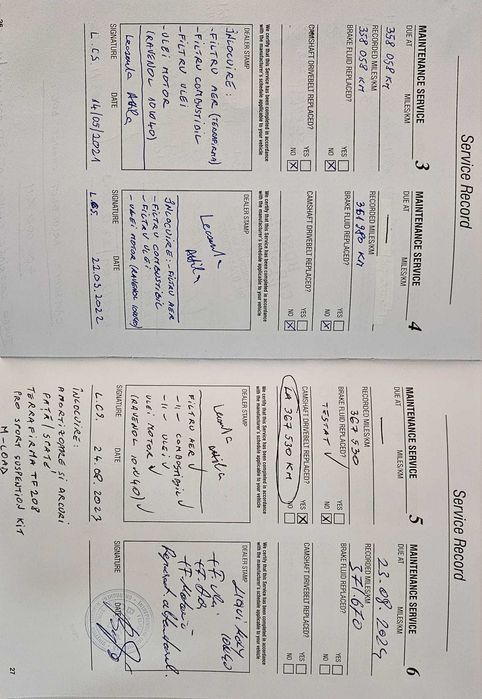 Service Record
MAINTENANCE SERVICE 3
DUE AT MILES/KM
358 058 KM
RECORDED MILES/KM
358 058 KM
BRAKE FLUID REPLACED? YES
NO X
CAMSHAFT DRIVEBELT REPLACED? YES
NO X
We certify that this Service has been completed in accordance
with the manufacturer's schedule applicable to your vehicle
DEALER STAMP
ÎNLOCUIRE:
- FILTRU AER (TERRAFIRMA)
- FILTRU COMBUSTIBIL
- FILTRU ULEI
- ULEI MOTOR
(RAVENOL 10W40)
Attila
SIGNATURE DATE
L.CS. 14/05/2021
MAINTENANCE SERVICE 4
DUE AT MILES/KM
RECORDED MILES/KM
361 980 KM
BRAKE FLUID REPLACED? YES
NO X
CAMSHAFT DRIVEBELT REPLACED? YES
NO X
We certify that this Service has been completed in accordance
with the manufacturer's schedule applicable to your vehicle
DEALER STAMP
Attila
ÎNLOCUIRE: - FILTRU AER
- FILTRU COMBUSTIBIL
- FILTRU ULEI
- ULEI MOTOR (RAVENOL 10W40)
SIGNATURE DATE
L.CS. 22.03.2022
26
Service Record
MAINTENANCE SERVICE 5
DUE AT MILES/KM
RECORDED MILES/KM
367 530
BRAKE FLUID REPLACED? YES
TESTAT √ NO X
CAMSHAFT DRIVEBELT REPLACED? YES X
LA 367 530 KM NO
We certify that this Service has been completed in accordance
with the manufacturer's schedule applicable to your vehicle
DEALER STAMP
Attila
FILTRU AER √
-11- COMBUSTIBIL √
-11- ULEI √
ULEI MOTOR √
(RAVENOL 10W40) √
SIGNATURE DATE
L.CS. 24.08.2023
ÎNLOCUIRE:
AMORTIZOARE SI ARCURI
FATĂ / SPATE
TERRAFIRMA TF208
PRO SPORT SUSPENTION KIT
M-LOAD
MAINTENANCE SERVICE 6
DUE AT MILES/KM
23.08.2024
RECORDED MILES/KM
371.670
BRAKE FLUID REPLACED? YES
NO
CAMSHAFT DRIVEBELT REPLACED? YES
NO
We certify that this Service has been completed in accordance
with the manufacturer's schedule applicable to your vehicle
DEALER STAMP
10W40
SIGNATURE DATE
27